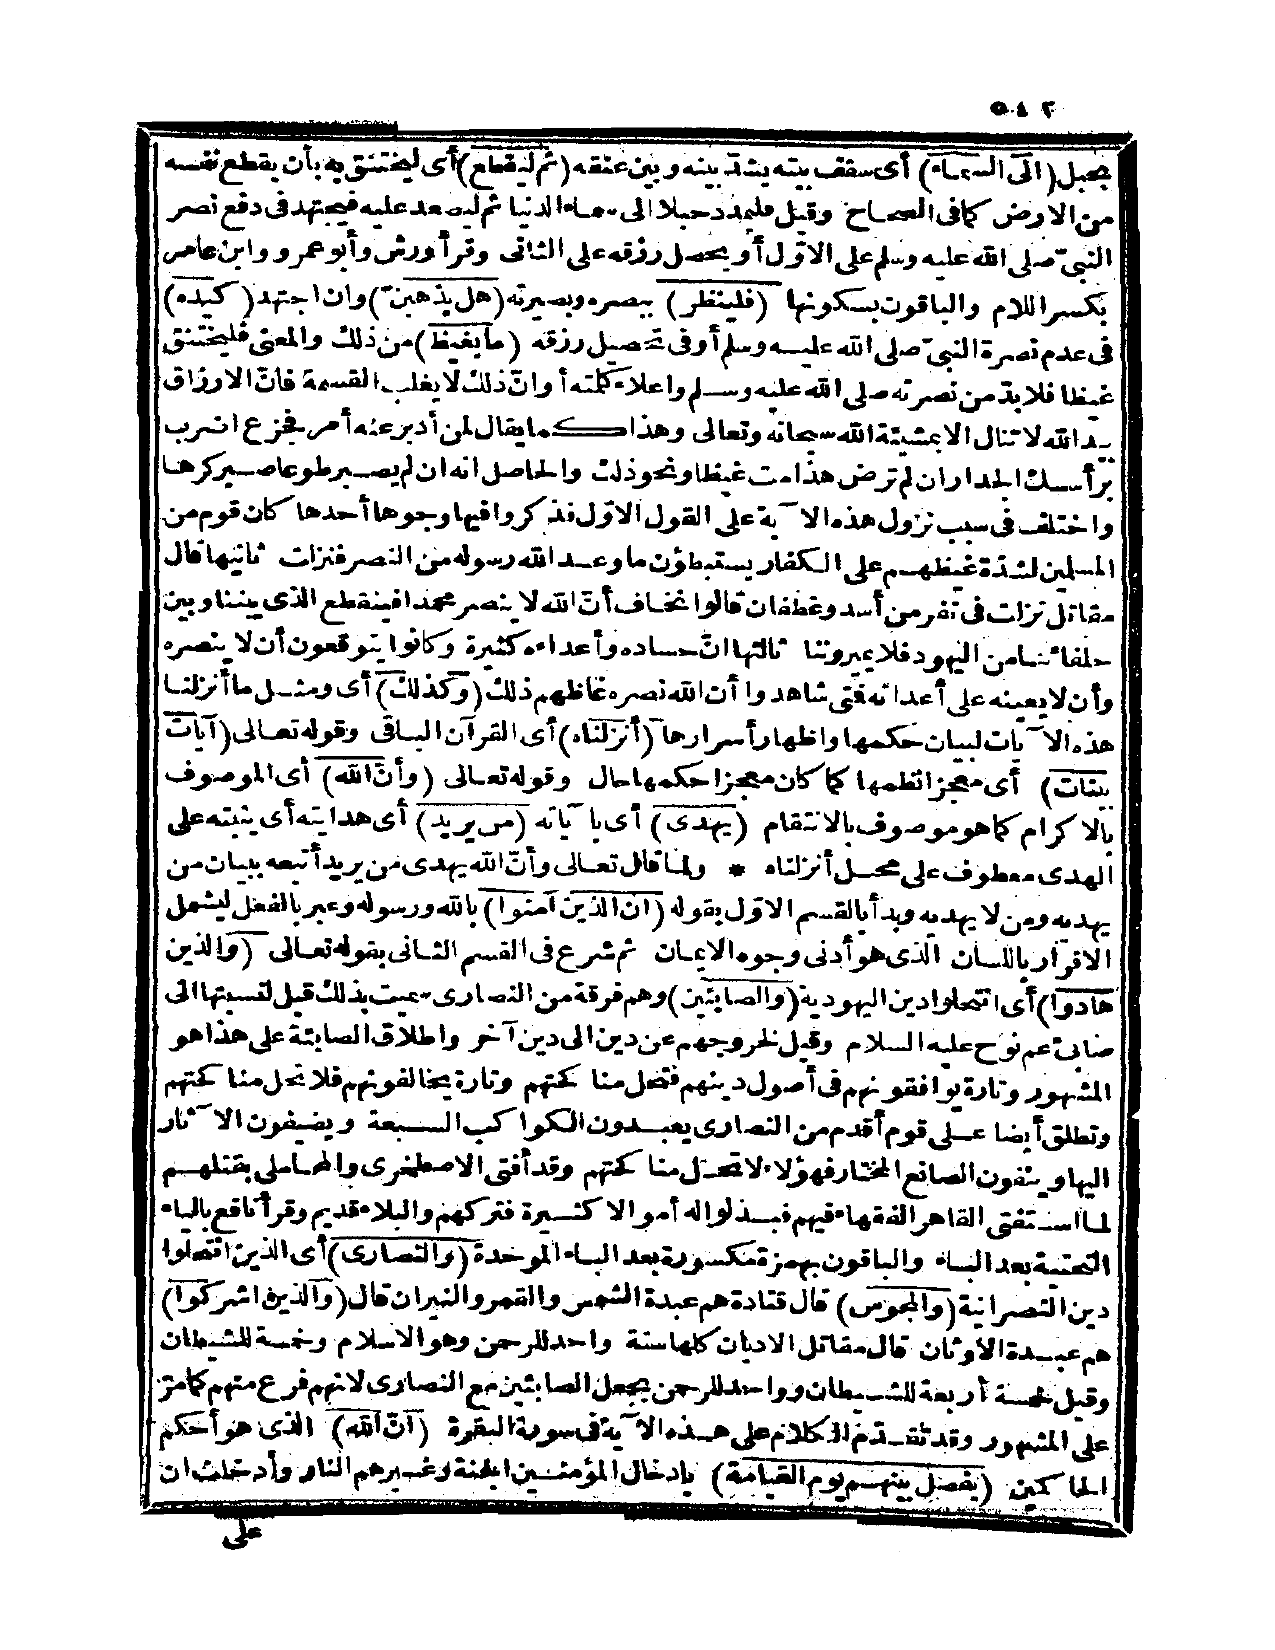 ٥٤٢
بحبل (الى السماء) أى سقف بيته يشدّ بينه وبين عنقه (ثم ليقطع) أى ليختنق به بأن يقطع نفسه
من الارض كما فى الصحاح وقيل فليمدد حبلا الى سماء الدنيا ثم ليصعد عليه فيجتهد فى دفع نصر
النبىّ صلى الله عليه وسلم على الاوّل أو يحصل رزقه على الثانى وقرأ ورش وأبو عمرو وابن عامر
بكسر اللام والباقون بسكونها (فلينظر) ببصره وبصيرته (هل يذهبنّ) وان اجتهد (كيده)
فى عدم نصرة النبىّ صلى الله عليه وسلم أو فى تحصيل رزقه (ما يغيظ) من ذلك والمعنى فليختنق
غيظا فلا بدّ من نصرته صلى الله عليه وسلم واعلاء كلمته أو انّ ذلك لا يغلب القسمة فانّ الارزاق
بيد الله لا تنال الا بمشيئة الله سبحانه وتعالى وهذا كما يقال لمن أدبر عنه أمر فجزع اضرب
برأسك الجدار ان لم ترض هذا مت غيظا ونحو ذلك والحاصل انه ان لم يصبر طوعا صبر كرها
واختلف فى سبب نزول هذه الآية على القول الاوّل فذكروا فيها وجوها أحدها كان قوم من
المسلمين لشدّة غيظهم على الكفار يستبطؤن ما وعد الله رسوله من النصر فنزلت ثانيها قال
مقاتل نزلت فى نفر من أسد وغطفان قالوا نخاف أنّ الله لا ينصر محمدا فينقطع الذى بيننا وبين
حلفائنا من اليهود فلا يميروننا ثالثها انّ حساده وأعداءه كثيرة وكانوا يتوقعون أن لا ينصره
وأن لا يعينه على أعدائه فمتى شاهدوا أن الله نصره غاظهم ذلك (وكذلك) أى ومثل ما أنزلنا
هذه الآيات لبيان حكمها واظهار أسرارها (أنزلناه) أى القرآن الباقى وقوله تعالى (آيات
بينات) أى معجزا نظمها كما كان معجزا حكمها حال وقوله تعالى (وأنّ الله) أى الموصوف
بالاكرام كما هو موصوف بالانتقام (يهدى) أى بآياته (من يريد) أى هدايته أى يثبته على
الهدى معطوف على محل أنزلناه * ولما قال تعالى وأنّ الله يهدى من يريد أتبعه ببيان من
يهديه ومن لا يهديه وبدأ بالقسم الاوّل بقوله (ان الذين آمنوا) بالله ورسوله وعبر بالفعل ليشمل
الاقرار باللسان الذى هو أدنى وجوه الايمان ثم شرع فى القسم الثانى بقوله تعالى (والذين
هادوا) أى انتحلوا دين اليهودية (والصابئين) وهم فرقة من النصارى سميت بذلك قيل لنسبتها الى
صابئ عم نوح عليه السلام وقيل لخروجهم عن دين الى دين آخر واطلاق الصابئة على هذا هو
المشهور وتارة يوافقونهم فى أصول دينهم فتحل مناكحتهم وتارة يخالفونهم فلا تحل مناكحتهم
وتطلق أيضا على قوم أقدم من النصارى يعبدون الكواكب السبعة ويضيفون الآثار
اليها وينفون الصانع المختار فهؤلاء لا تحل مناكحتهم وقد أفتى الاصطخرى والمحاملى بقتلهم
لما استفتى القاهر الفقهاء فيهم فبذلوا له أموالا كثيرة فتركهم والبلاء قديم وقرأ نافع بالياء
التحتية بعد الباء والباقون بهمزة مكسورة بعد الباء الموحدة (والنصارى) أى الذين انتحلوا
دين النصرانية (والمجوس) قال قتادة هم عبدة الشمس والقمر والنيران قال (والذين اشركوا)
هم عبدة الاوثان قال مقاتل الاديان كلها ستة واحد للرحمن وهو الاسلام وخمسة للشيطان
وقيل خمسة أربعة للشيطان وواحد للرحمن بجعل الصابئين مع النصارى لانهم فرع منهم كما مرّ
على المشهور وقد تقدّم الكلام على هذه الآية فى سورة البقرة (انّ الله) الذى هو أحكم
الحاكمين (يفصل بينهم يوم القيامة) بادخال المؤمنين الجنة وغيرهم النار وأدخلت ان
على